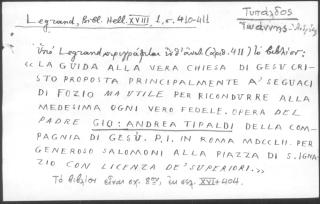 Τυπάλδος
Ἰωάννης-Ἀνδρέας
Legrand, Bibl. Hell. XVIII, 1, σ. 410-411
Ὑπὸ Legrand περιγράφεται (ἀριθ. 411) τὸ βιβλίον:
«LA GUIDA ALLA VERA CHIESA DI GESU CRI-
STO PROPOSTA PRINCIPALMENTE A' SEGUACI
DI FOZIO MA UTILE PER RICONDURRE ALLA
MEDESIMA OGNI VERO FEDELE. OPERA DEL
PADRE GIO: ANDREA TIPALDI DELLA COM-
PAGNIA DI GESÙ. P.I. IN ROMA MDCCLII. PER
GENEROSO SALOMONI ALLA PIAZZA DI S. IGNA-
ZIO CON LICENZA DE' SUPERIORI.»
Τὸ βιβλίον εἶναι σχ. 8ον, ἐκ σελ. XVI+404.